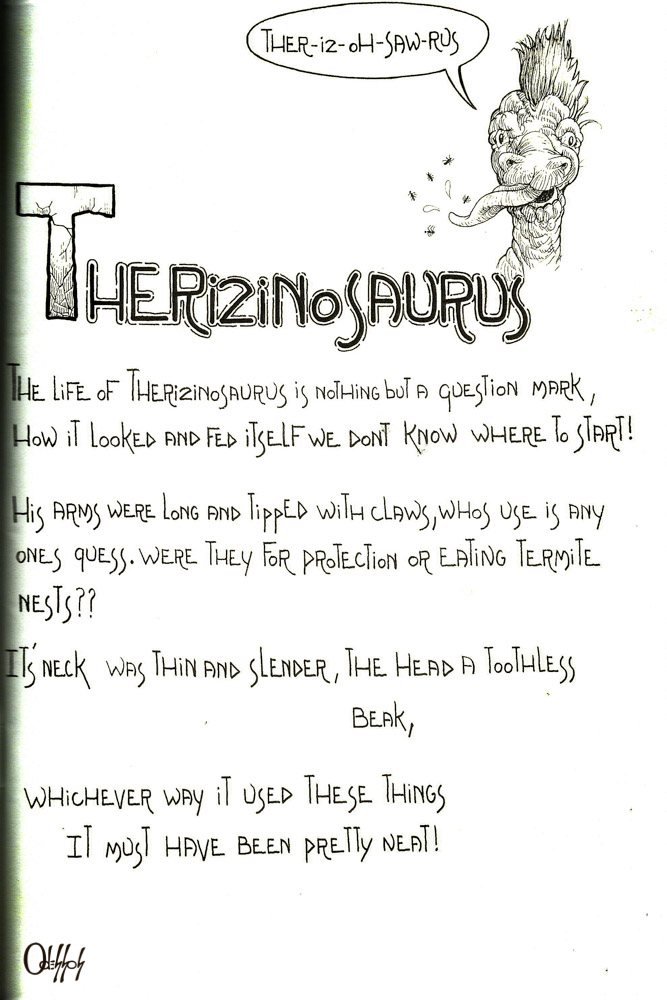 THER-iZ-OH-SAW-RUS
THERiZiNOSAURUS
THE LiFE OF THERiZiNOSAURUS iS NOTHiNG BUT A QUESTiON MARK,
HOW iT LOOKED AND FED iTSELF WE DONT KNOW WHERE TO START!
HiS ARMS WERE LONG AND TiPPED WiTH CLAWS, WHOS USE iS ANY
ONES QUESS. WERE THEY FOR PROTECTiON OR EATiNG TERMiTE
NESTS??
ITS' NECK WAS THiN AND SLENDER, THE HEAD A TOOTHLESS
BEAK,
WHiCHEVER WAY iT USED THESE THiNGS
IT MUST HAVE BEEN PRETTY NEAT!